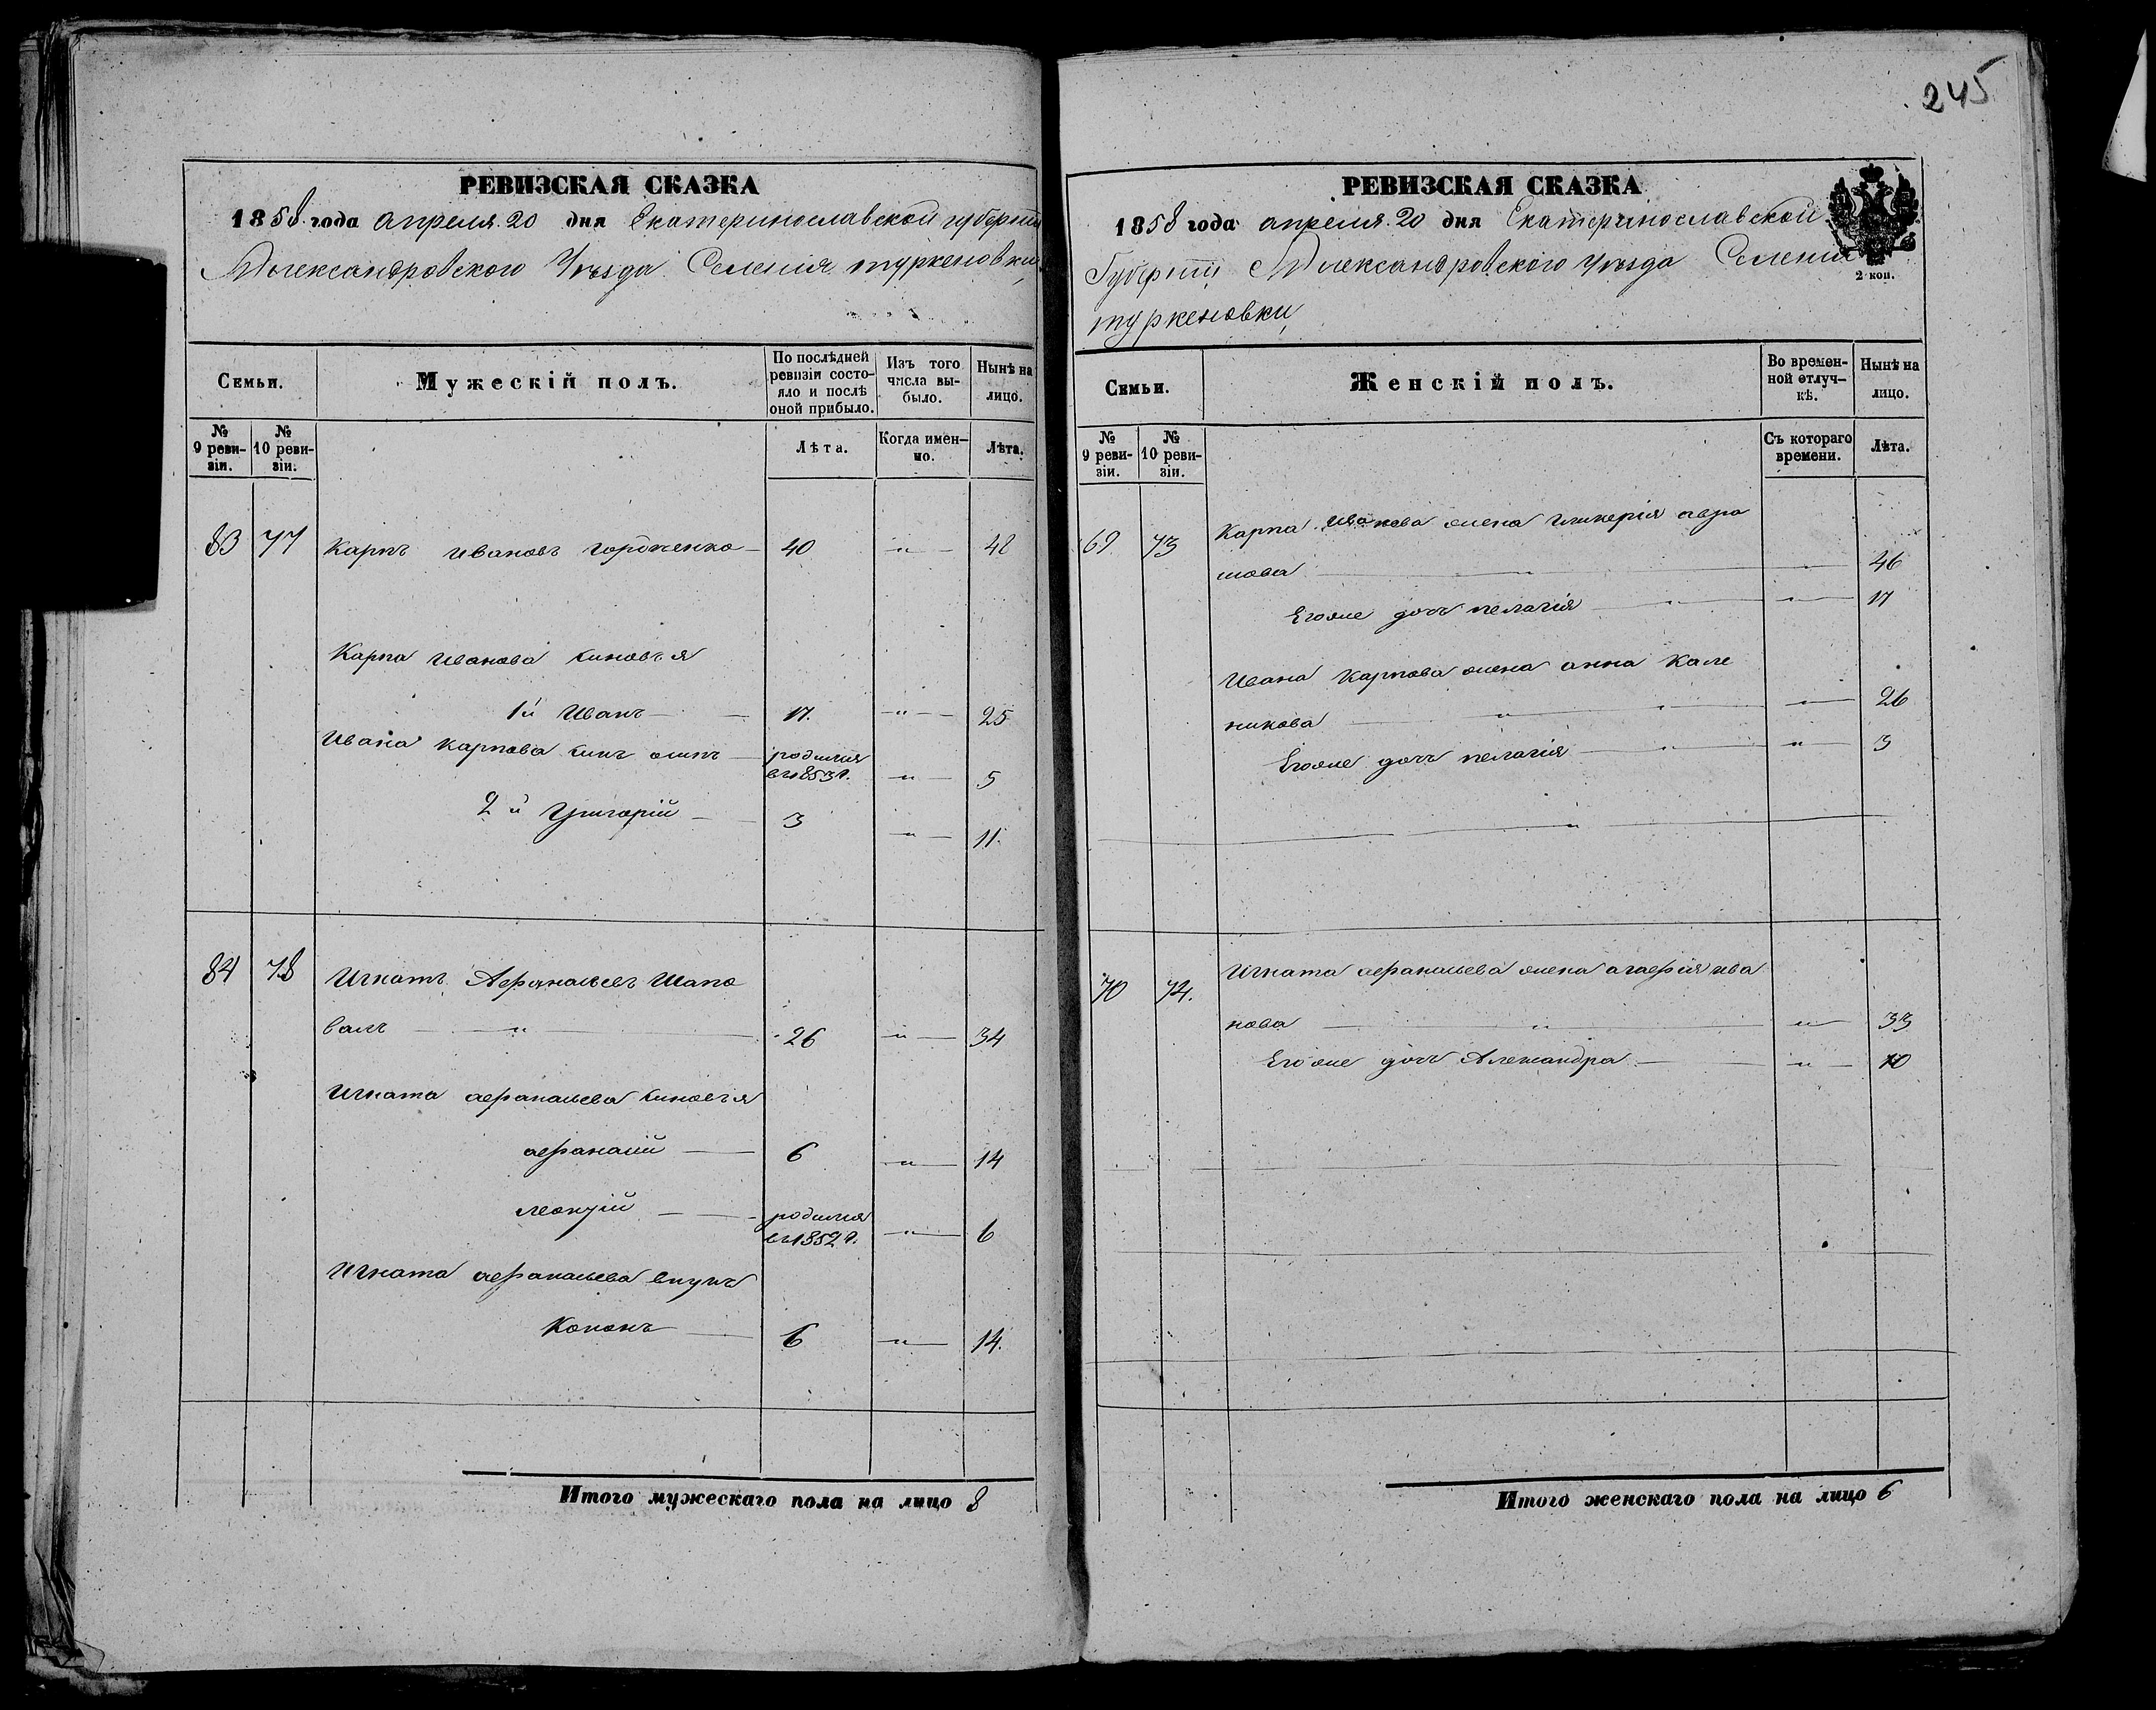 245
РЕВИЗСКАЯ СКАЗКА
1858 года апреля 20 дня Екатеринославской губернии
Александровского Уезда Селения туркеновки
Семьи.
Мужескій полъ.
По послѣдней ревизіи состояло и послѣ оной прибыло.
Изъ того числа выбыло.
Нынѣ на лицо.
№ 9 ревизіи.
№ 10 ревизіи.
Лѣта.
Когда именно.
Лѣта.
83 77 Карпъ Ивановъ 40 — „ — 48
Карпа Иванова синовъя
1й Иванъ — 17. — „ — 25
Ивана Карпова синъ — родился въ 1853 г. „ — 5
2й Григорій — 3 „ — 11.
84 78 Игнатъ Афанасьевъ Шапо
валъ — „ — 26 „ — 34
Игната афанасьева синовъя
афанасій — 6 „ — 14
леонтій — родился въ 1852 г. — „ — 6
Игната афанасьева внукъ
Кононъ — 6 „ — 14.
Итого мужескаго пола на лицо 8
РЕВИЗСКАЯ СКАЗКА
1858 года апреля 20 дня Екатеринославской
2 коп.
Губернии Александровского Уезда Селения
туркеновки
Семьи.
Женскій полъ.
Во временной отлучкѣ.
Нынѣ на лицо.
№ 9 ревизіи.
№ 10 ревизіи.
Съ котораго времени.
Лѣта.
69 73 Карпа Иванова жена гликерія авра
мова — „ — 46
Егоже дочь пелагія — „ — „ — 17
Ивана Карпова жена анна Кале
никова — „ — 26
Егоже дочь пелагія — „ — „ — 3
70 74. Игната афанасьева жена агафія ива
нова — „ — „ — 33
Егоже дочь Александра — „ — 10
Итого женскаго пола на лицо 6